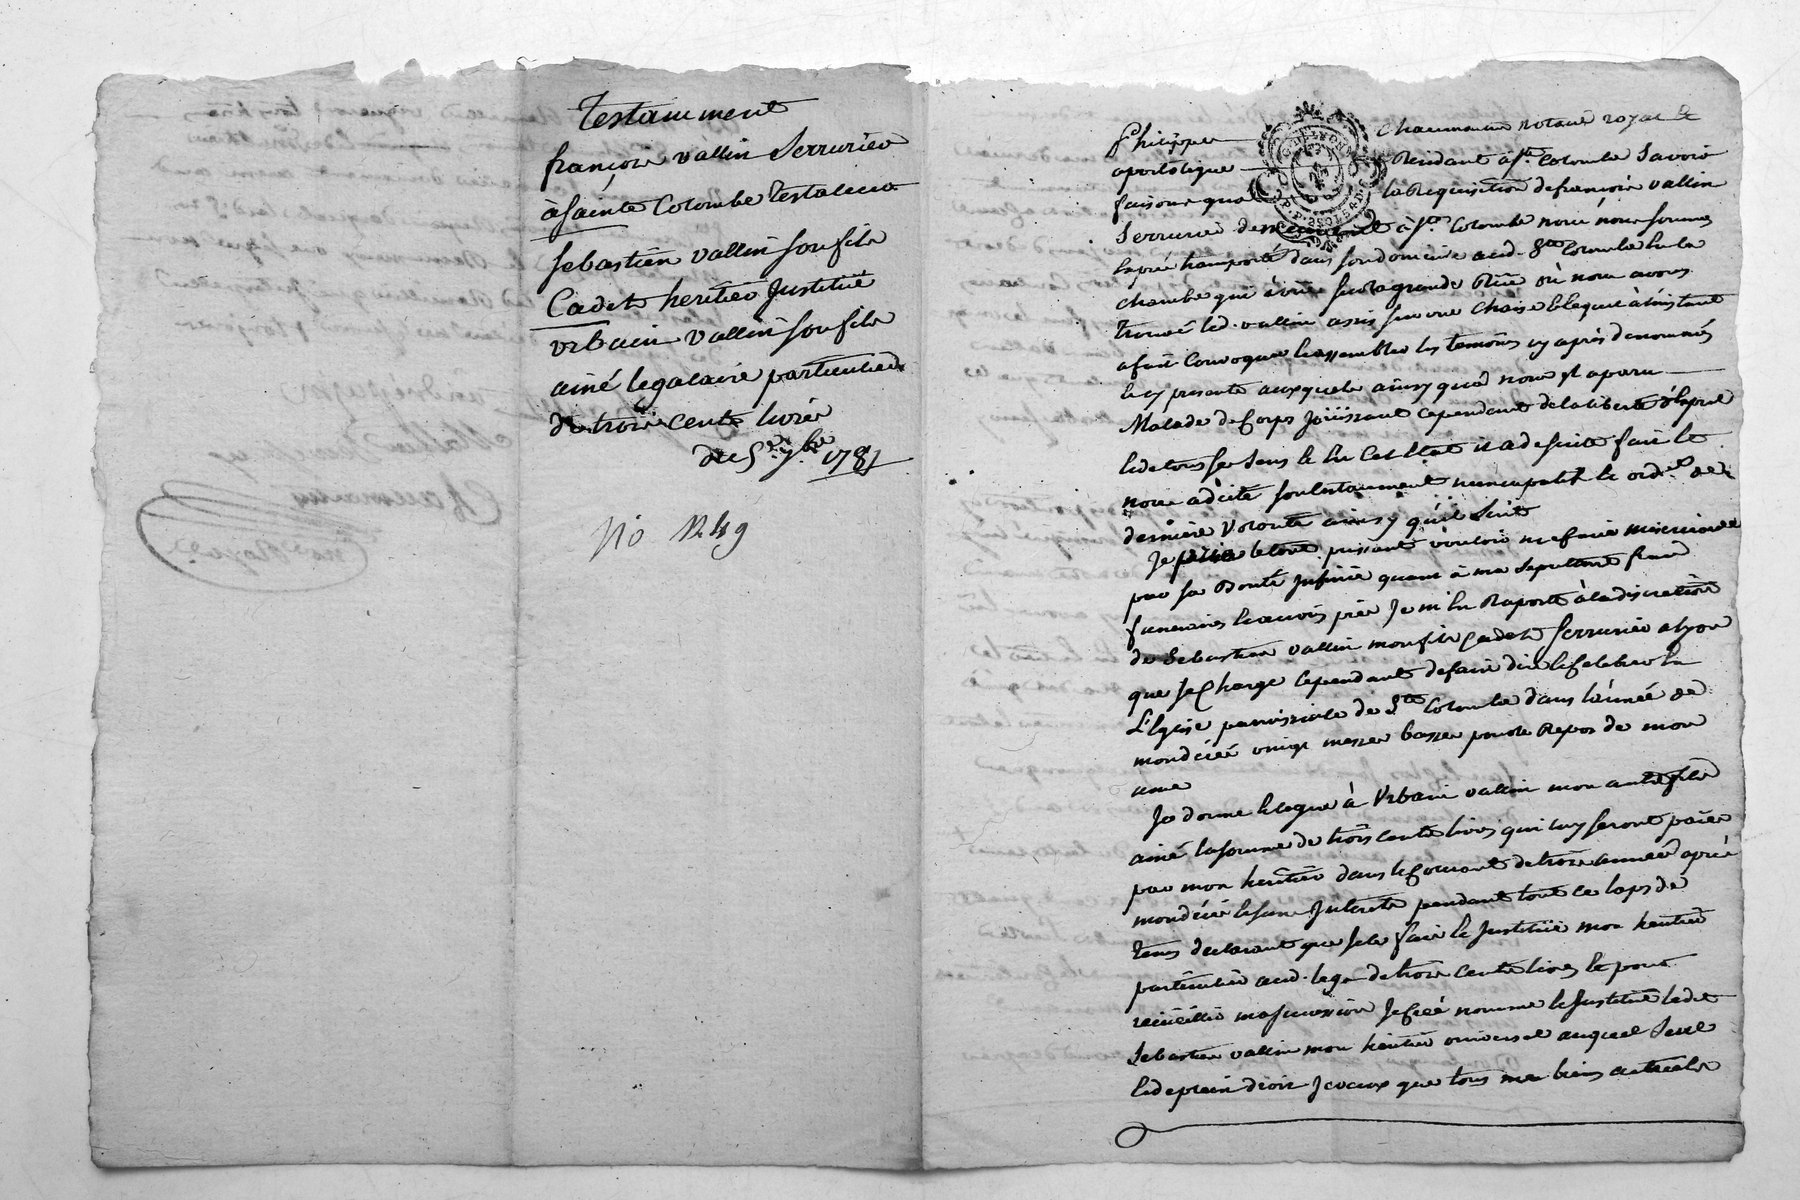 Testamment
françois vallin Serrurier
à Sainte Colombe Testateur
Sebastien vallin son fils
Cadet heritier Justitué
Urbain Vallin son fils
ainé legataire particulier
de trois cents livres
du 5e. 7bre 1781
No 1249
Philippe Chaumartin notaire royal &
apostolique Residant à Ste. Colombe Savoir
faisons qu'a la Requisition de françois vallin
Serrurier demeurant à Ste. Colombe nous nous sommes
exprès transporté dans son domicile aud. Ste Colombe en la
chambre qui a vue sur la grande Rüe où nous avons
trouvé led. vallin assis sur une chaise lequel à l'instant
a fait Convoquer & assembler les temoins cy après denommés
& cy presents auxquels ainsy qu'à nous il a paru
Malade de Corps Joüissant cependant de la liberté d'Esprit
& de tous ses Sens & En Cet Etat il a de suite fait &
nous a dicté son testament nuncupatif & ord.ce de
dernière Volonté ainsy qu'il Suit
Je prie le tout puissant vouloir me faire misericorde
par sa Bonté Infinie quant à ma Sepulture frais
funeraires & œuvres pies Je m'En Raporte à la discretion
de Sebastien vallin mon fils Cadet Serrurier a Lyon
que Je Charge Cependant de faire dire & Celebrer En
L'Eglise parroissiale de Ste Colombe dans l'année de
mon décès vingt messes basses pour le Repos de mon
ame
Je donne & legue à Urbain vallin mon autre fils
ainé la somme de trois cents livres qui luy seront païés
par mon heritier dans le Courant de trois années après
mon décès & sans Interets pendant tout ce laps de
tems declarant que Je le fais & Justitüe mon heritier
particulier aud. legs de trois cents livres & pour
recüeillir ma succession Je Créé nomme & Justitüe ledit
Sebastien vallin mon heritier universel auquel Seul
& de plein droit Je veux que tous mes biens actuels
C. D. LYON